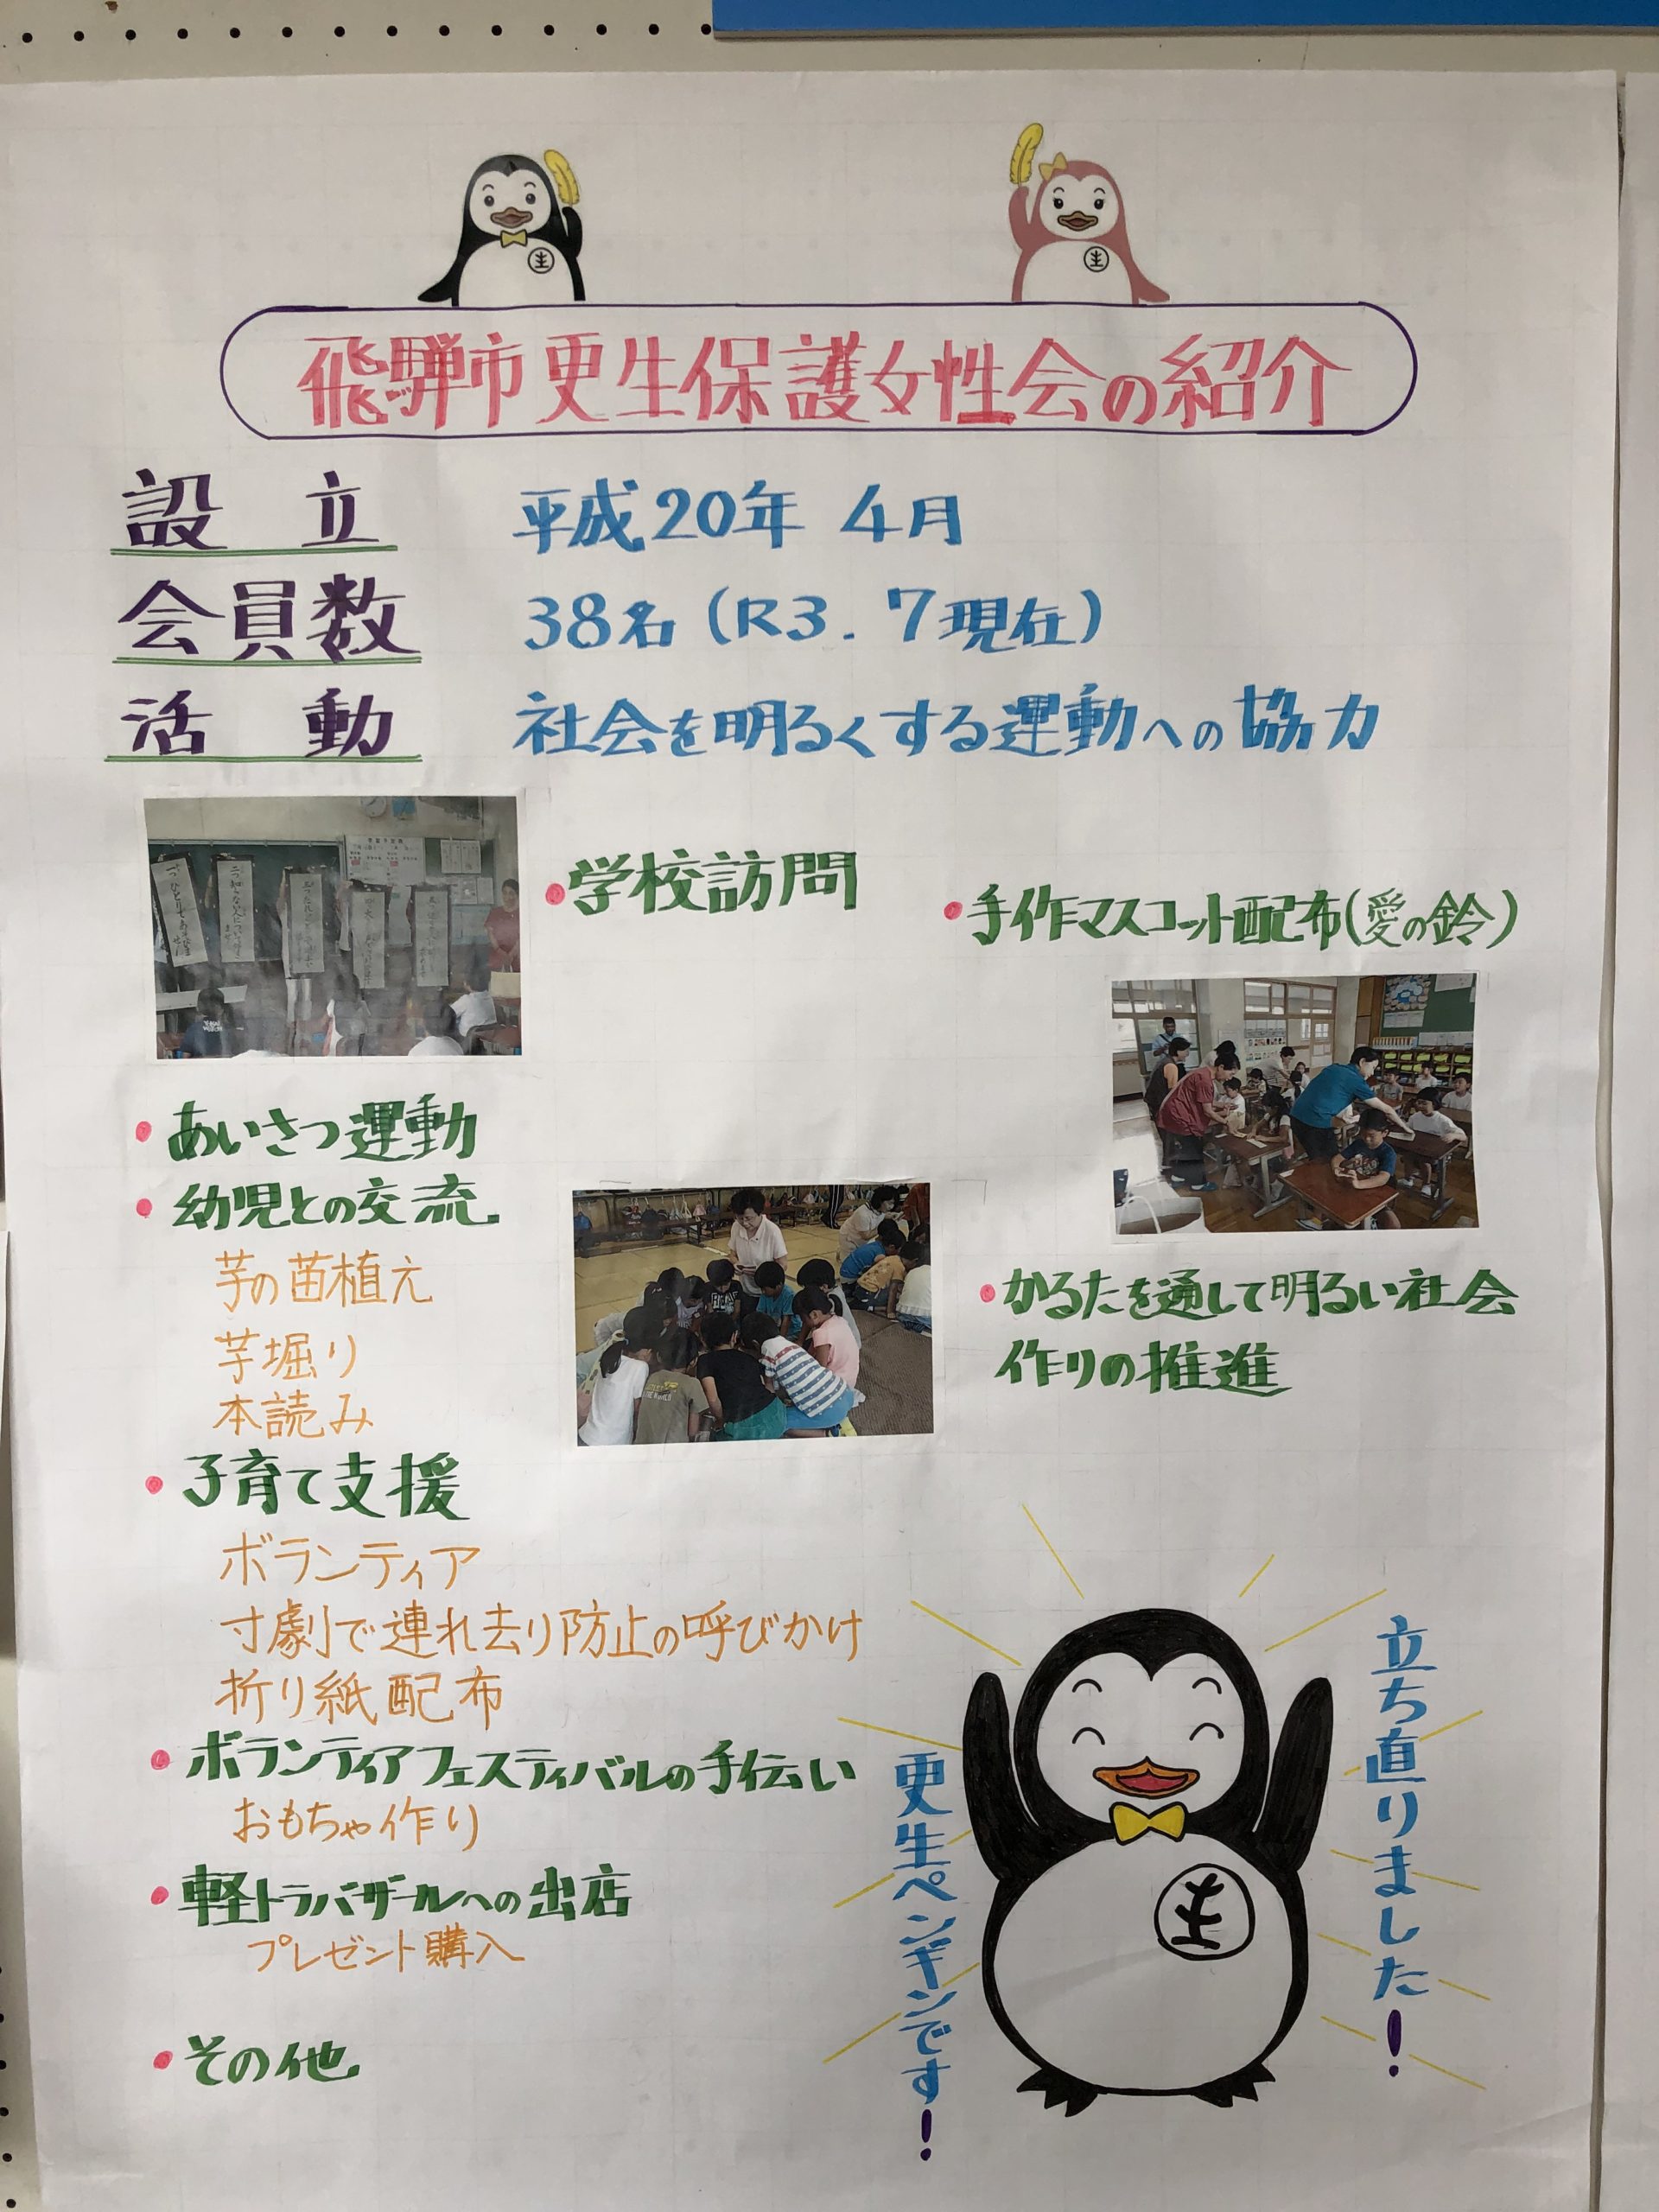 飛騨市更生保護女性会の紹介
設立 平成20年 4月
会員数 38名(R3.7現在)
活動 社会を明るくする運動への協力
・学校訪問
・手作マスコット配布(愛の鈴)
・あいさつ運動
・幼児との交流
芋の苗植え
芋堀り
本読み
・かるたを通して明るい社会
作りの推進
・子育て支援
ボランティア
寸劇で連れ去り防止の呼びかけ
折り紙配布
・ボランティアフェスティバルの手伝い
おもちゃ作り
・軽トラバザールへの出店
プレゼント購入
・その他
立ち直りました!
更生ペンギンです!